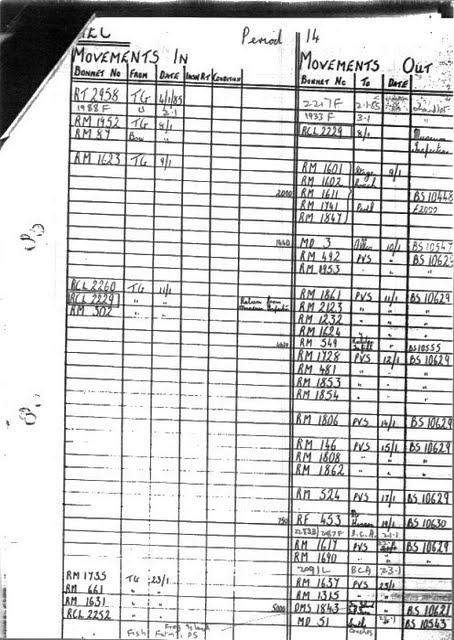 Period 14
MOVEMENTS IN
BONNET NO FROM DATE INCH RT CONDITION
RT 2958 TG 4/1/85
1988 F " 2.1
RM 1952 TG 8/1
RM 87 Bow "
RM 1623 TG 9/1
RCL 2260 TG 11/1
RCL 2229 " " Return from Museum Inspection
RM 302 " "
RM 1735 TG 23/1
RM 661 " "
RM 1631 " "
RCL 2252
MOVEMENTS OUT
BONNET NO TO DATE
2217F 2.1.85
1933 F 3.1
RCL 2229 8/1 Museum Inspection
RM 1601 9/1
RM 1602
2000 RM 1611 BS 10448
RM 1741 £2000
RM 1847
MD 3 10/1 BS 10547
RM 492 PVS " BS 10623
RM 1953 " "
RM 1861 PVS 11/1 BS 10629
RM 2123 " "
RM 1232 " "
RM 1624 "
RM 549 " BS 10555
RM 1728 PVS 12/1 BS 10629
RM 481 " "
RM 1853 " "
RM 1854 " "
RM 1806 PVS 14/1 BS 10629
RM 146 PVS 15/1 BS 10629
RM 1808 " "
RM 1862 " "
RM 524 PVS 17/1 BS 10629
750 RF 453 19/1 BS 10630
RM 1617 PVS BS 10629
RM 1690 " "
2091L BCA 23.1
RM 1637 PVS 23/1
RM 1315 " "
5000 DMS 1843 BS 10621
MD 51 BS 10543